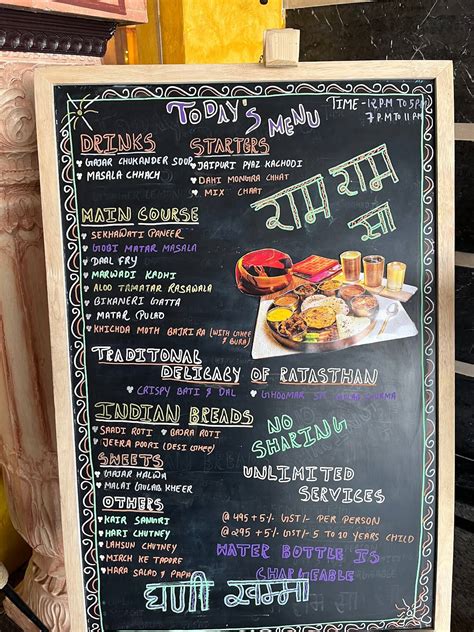 TODAY'S MENU
TIME - 12 P.M TO 5 P.M
7 P.M TO 11 P.M
DRINKS
GAJAR CHUKANDER SOOP
MASALA CHHACH
STARTERS
JAIPURI PYAZ KACHODI
DAHI MONGRA CHHAT
MIX CHAAT
राम राम
सा
MAIN COURSE
SEKHAWATI PANEER
GOBI MATAR MASALA
DAAL FRY
MARWADI KADHI
ALOO TAMATAR RASAWALA
BIKANERI GATTA
MATAR PULAO
KHICHDA MOTH BAJRI RA (WITH GHEE
& BURA)
TRADITONAL
DELICACY OF RAJASTHAN
CRISPY BATI & DAL
GHOOMAR
CHURMA
INDIAN BREADS
SAADI ROTI
BAJRA ROTI
JEERA POORI (DESI GHEE)
NO
SHARING
SWEETS
GAJAR HALWA
MALAI GULAB KHEER
UNLIMITED
SERVICES
OTHERS
KAIR SANGRI
HARI CHUTNEY
LAHSUN CHUTNEY
MIRCH KE TAPORE
HARA SALAD & PAPAD
@ 495 + 5% GST/- PER PERSON
@ 295 + 5% GST/- 5 TO 10 YEARS CHILD
WATER BOTTLE IS
CHARGEABLE
घणी खम्मा